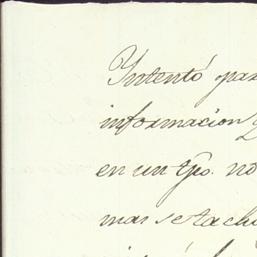 Yntentó par
informacion y
en un tpo. no
mas se tachó